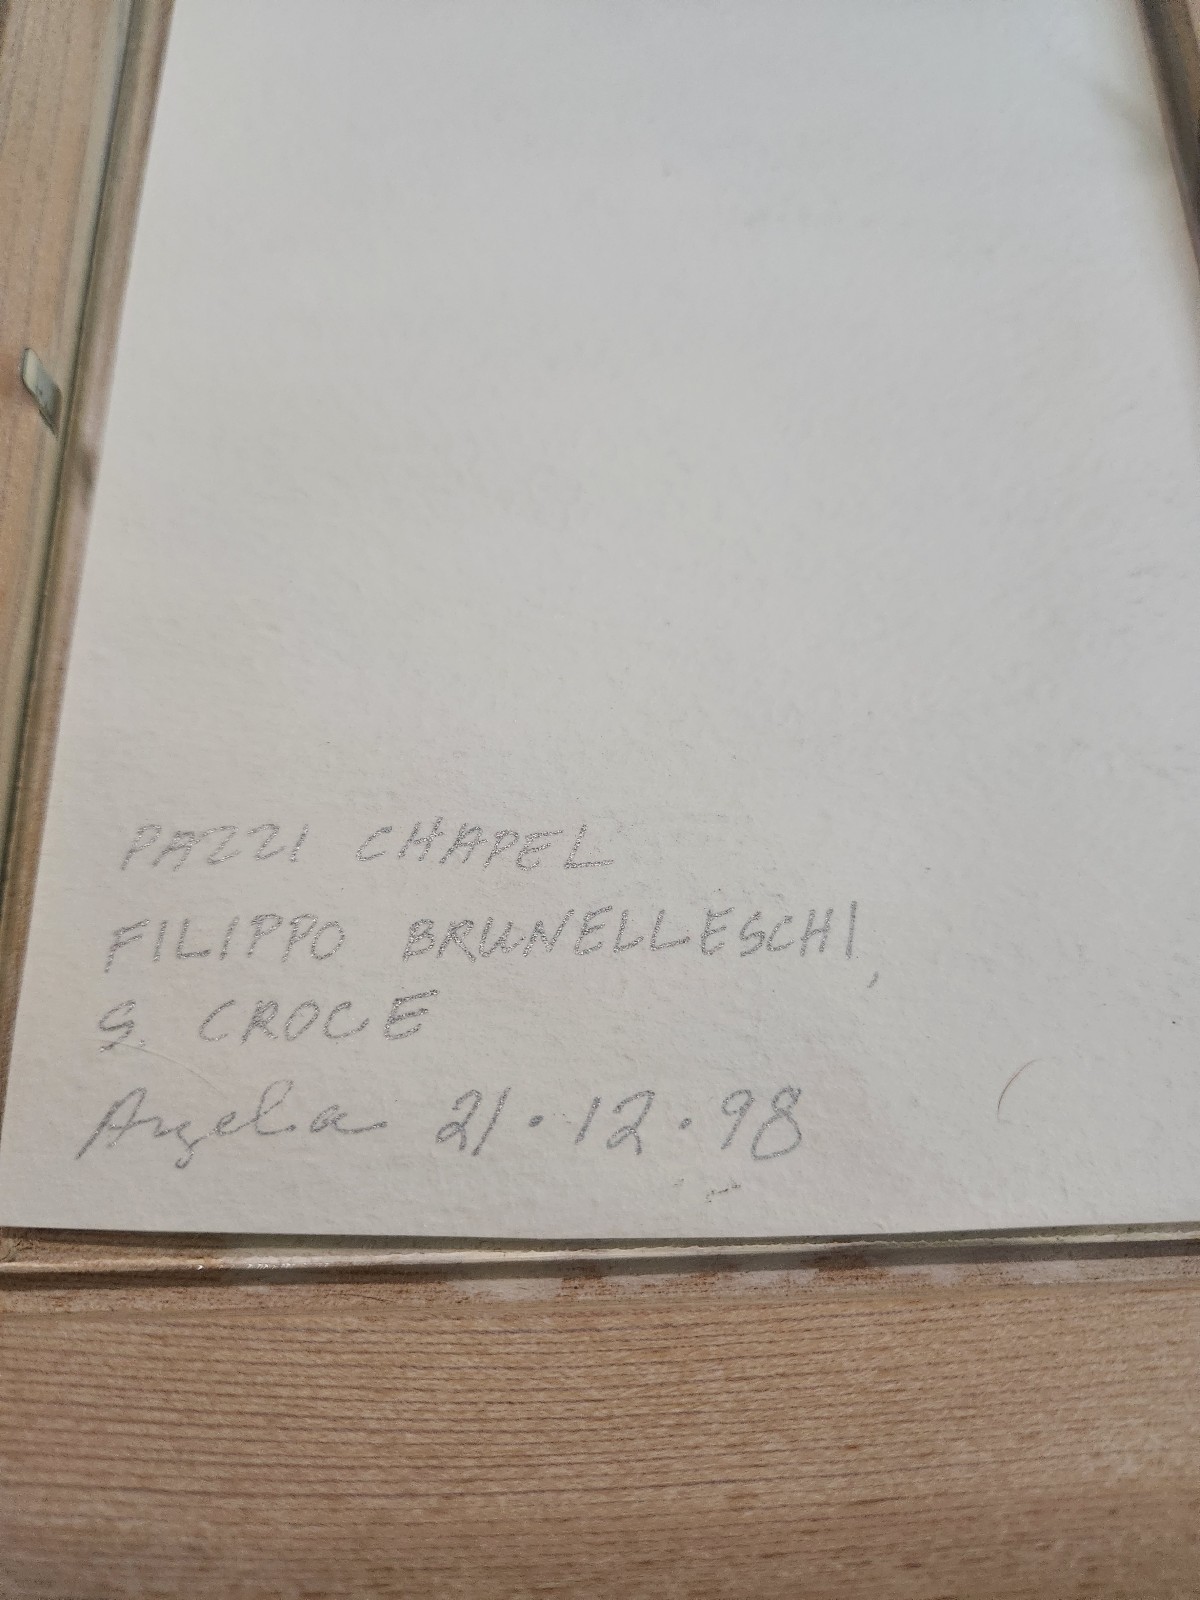 PAZZI CHAPEL
FILIPPO BRUNELLESCHI,
S. CROCE
Angela 21.12.98